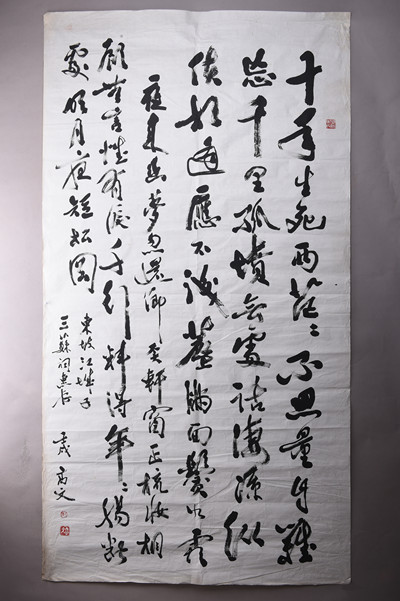 十年生死两茫々不思量自難
忘千里孤墳無處話淒涼縱
使相逢應不識塵滿面鬢如霜
夜来幽夢忽還鄉小軒窗正梳妝相
顧無言惟有淚千行料得年々腸斷
處明月夜短松岡
東坡江城子
三蘇祠惠存
壬戌高文